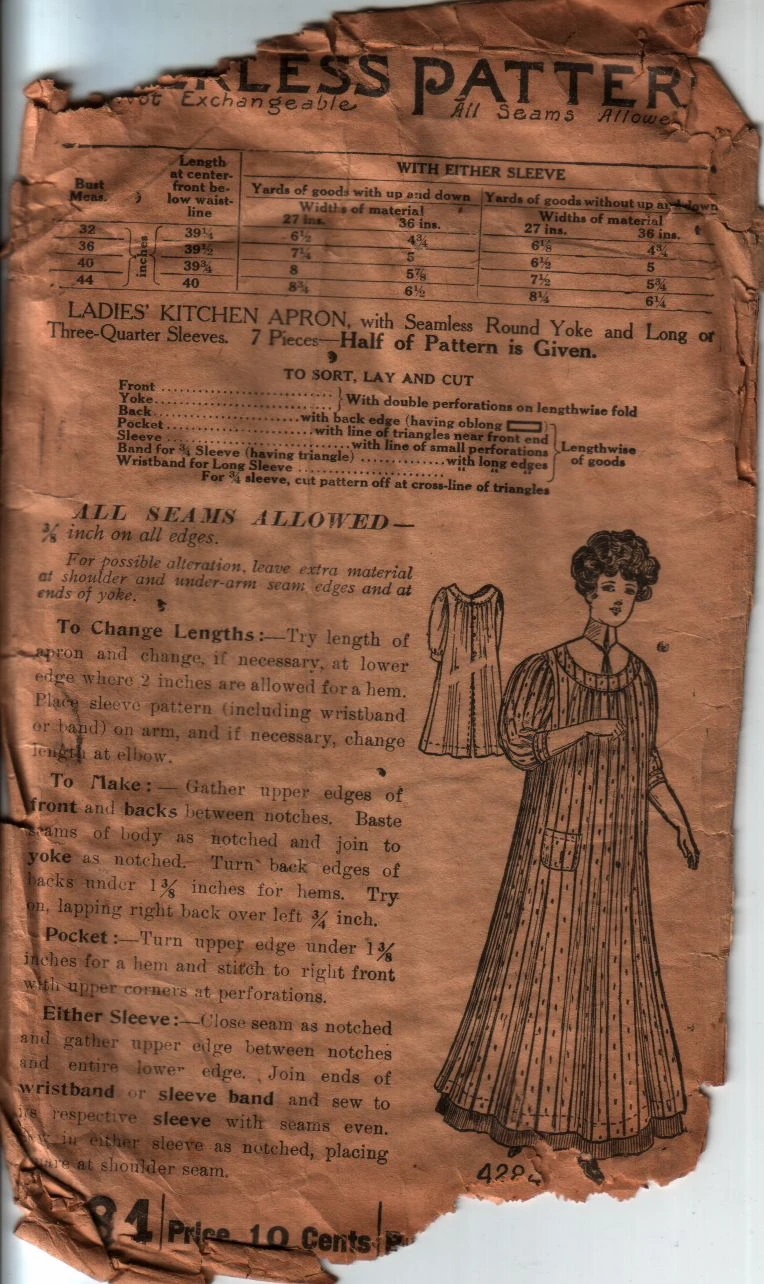 ERLESS PATTER
Not Exchangeable All Seams Allowe
WITH EITHER SLEEVE
Bust Meas. Length at center-front be-low waist-line Yards of goods with up and down Yards of goods without up and down
Widths of material Widths of material
27 ins. 36 ins. 27 ins. 36 ins.
32 39¼ 6½ 4¾ 6⅛ 4¾
36 inches 39½ 7¼ 5 6½ 5
40 39¾ 8 5⅞ 7½ 5¾
44 40 8¾ 6½ 8¼ 6¼
LADIES' KITCHEN APRON, with Seamless Round Yoke and Long or
Three-Quarter Sleeves. 7 Pieces—Half of Pattern is Given.
TO SORT, LAY AND CUT
Front
Yoke With double perforations on lengthwise fold
Back with back edge (having oblong )
Pocket with line of triangles near front end
Sleeve with line of small perforations Lengthwise
Band for ¾ Sleeve (having triangle) with long edges of goods
Wristband for Long Sleeve " " "
For ¾ sleeve, cut pattern off at cross-line of triangles
ALL SEAMS ALLOWED—
⅜ inch on all edges.
For possible alteration, leave extra material
at shoulder and under-arm seam edges and at
ends of yoke.
To Change Lengths:—Try length of
apron and change, if necessary, at lower
edge where 2 inches are allowed for a hem.
Place sleeve pattern (including wristband
or band) on arm, and if necessary, change
length at elbow.
To Make:— Gather upper edges of
front and backs between notches. Baste
seams of body as notched and join to
yoke as notched. Turn back edges of
backs under 1⅜ inches for hems. Try
on, lapping right back over left ¾ inch.
Pocket:—Turn upper edge under 1⅜
inches for a hem and stitch to right front
with upper corners at perforations.
Either Sleeve:—Close seam as notched
and gather upper edge between notches
and entire lower edge. Join ends of
wristband or sleeve band and sew to
its respective sleeve with seams even.
Sew in either sleeve as notched, placing
at shoulder seam.
4284
84 Price 10 Cents